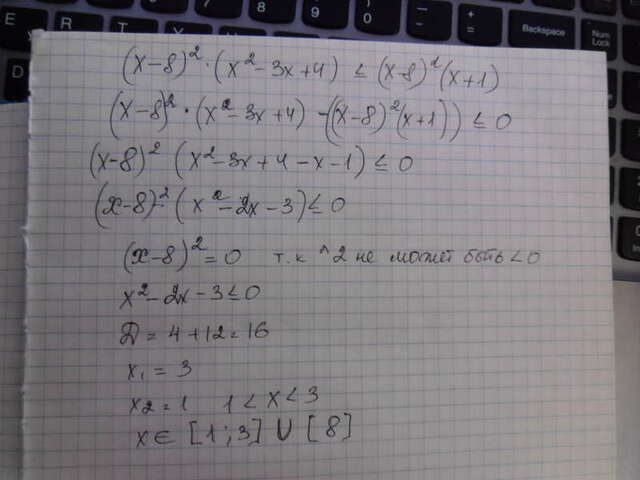 E R T
D
8 9 0 - + = Backspace Num Lock
7 8 9 ) 0 - + = Backspace Num Lock
(x-8)² · (x² - 3x + 4) ≤ (x-8)² (x+1)
(x-8)² · (x² - 3x + 4) - ((x-8)² (x+1)) ≤ 0
(x-8)² (x² - 3x + 4 - x - 1) ≤ 0
(x-8)² · (x² - 2x - 3) ≤ 0
(x-8)² = 0 т.к ^2 не может быть < 0
x² - 2x - 3 ≤ 0
D = 4 + 12 = 16
x₁ = 3
x₂ = 1 1 < x < 3
x ∈ [1; 3] ∪ [8]